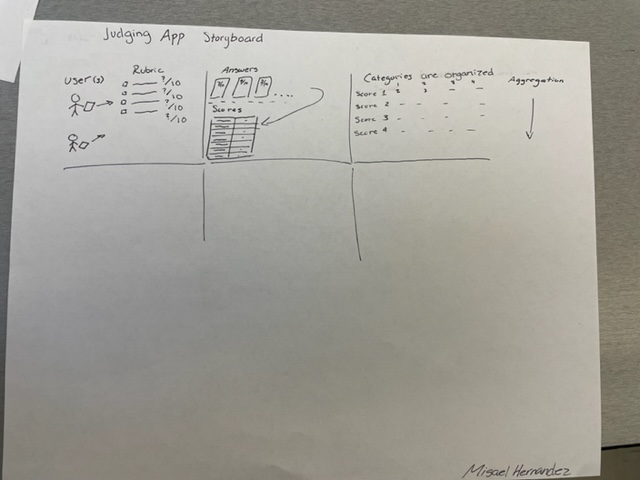 Judging App Storyboard
User(s)
Rubric
?/10
?/10
?/10
?/10
Answers
Scores
Categories are organized
1 2 3 4
Score 1
Score 2
Score 3
Score 4
Aggregation
Misael Hernandez